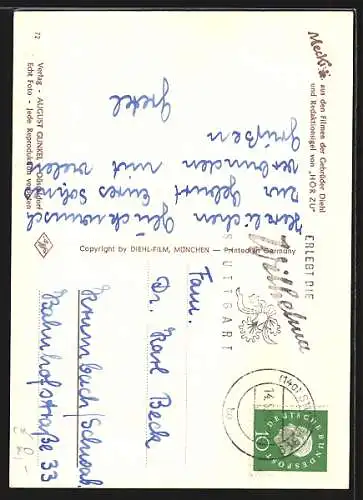 Mecki
aus den Filmen der Gebrüder Diehl
und Redaktionsigel von „HÖR ZU"
Herzlichen Glückwunsch
zur Geburt Eures Sohnes
verbunden mit vielen
Grüßen
Gretel
72
Verlag - AUGUST GUNKEL - Düsseldorf
Echt Foto - Jede Reproduktion verboten
Copyright by DIEHL-FILM, MÜNCHEN - Printed in Germany
ERLEBT DIE
Wilhelma
STUTTGART
(14a) ST
14.
b
DEUTSCHE BUNDESPOST
10
Fam.
Dr. Karl Beck
Krumbach/Schwab.
Bahnhofstraße 33